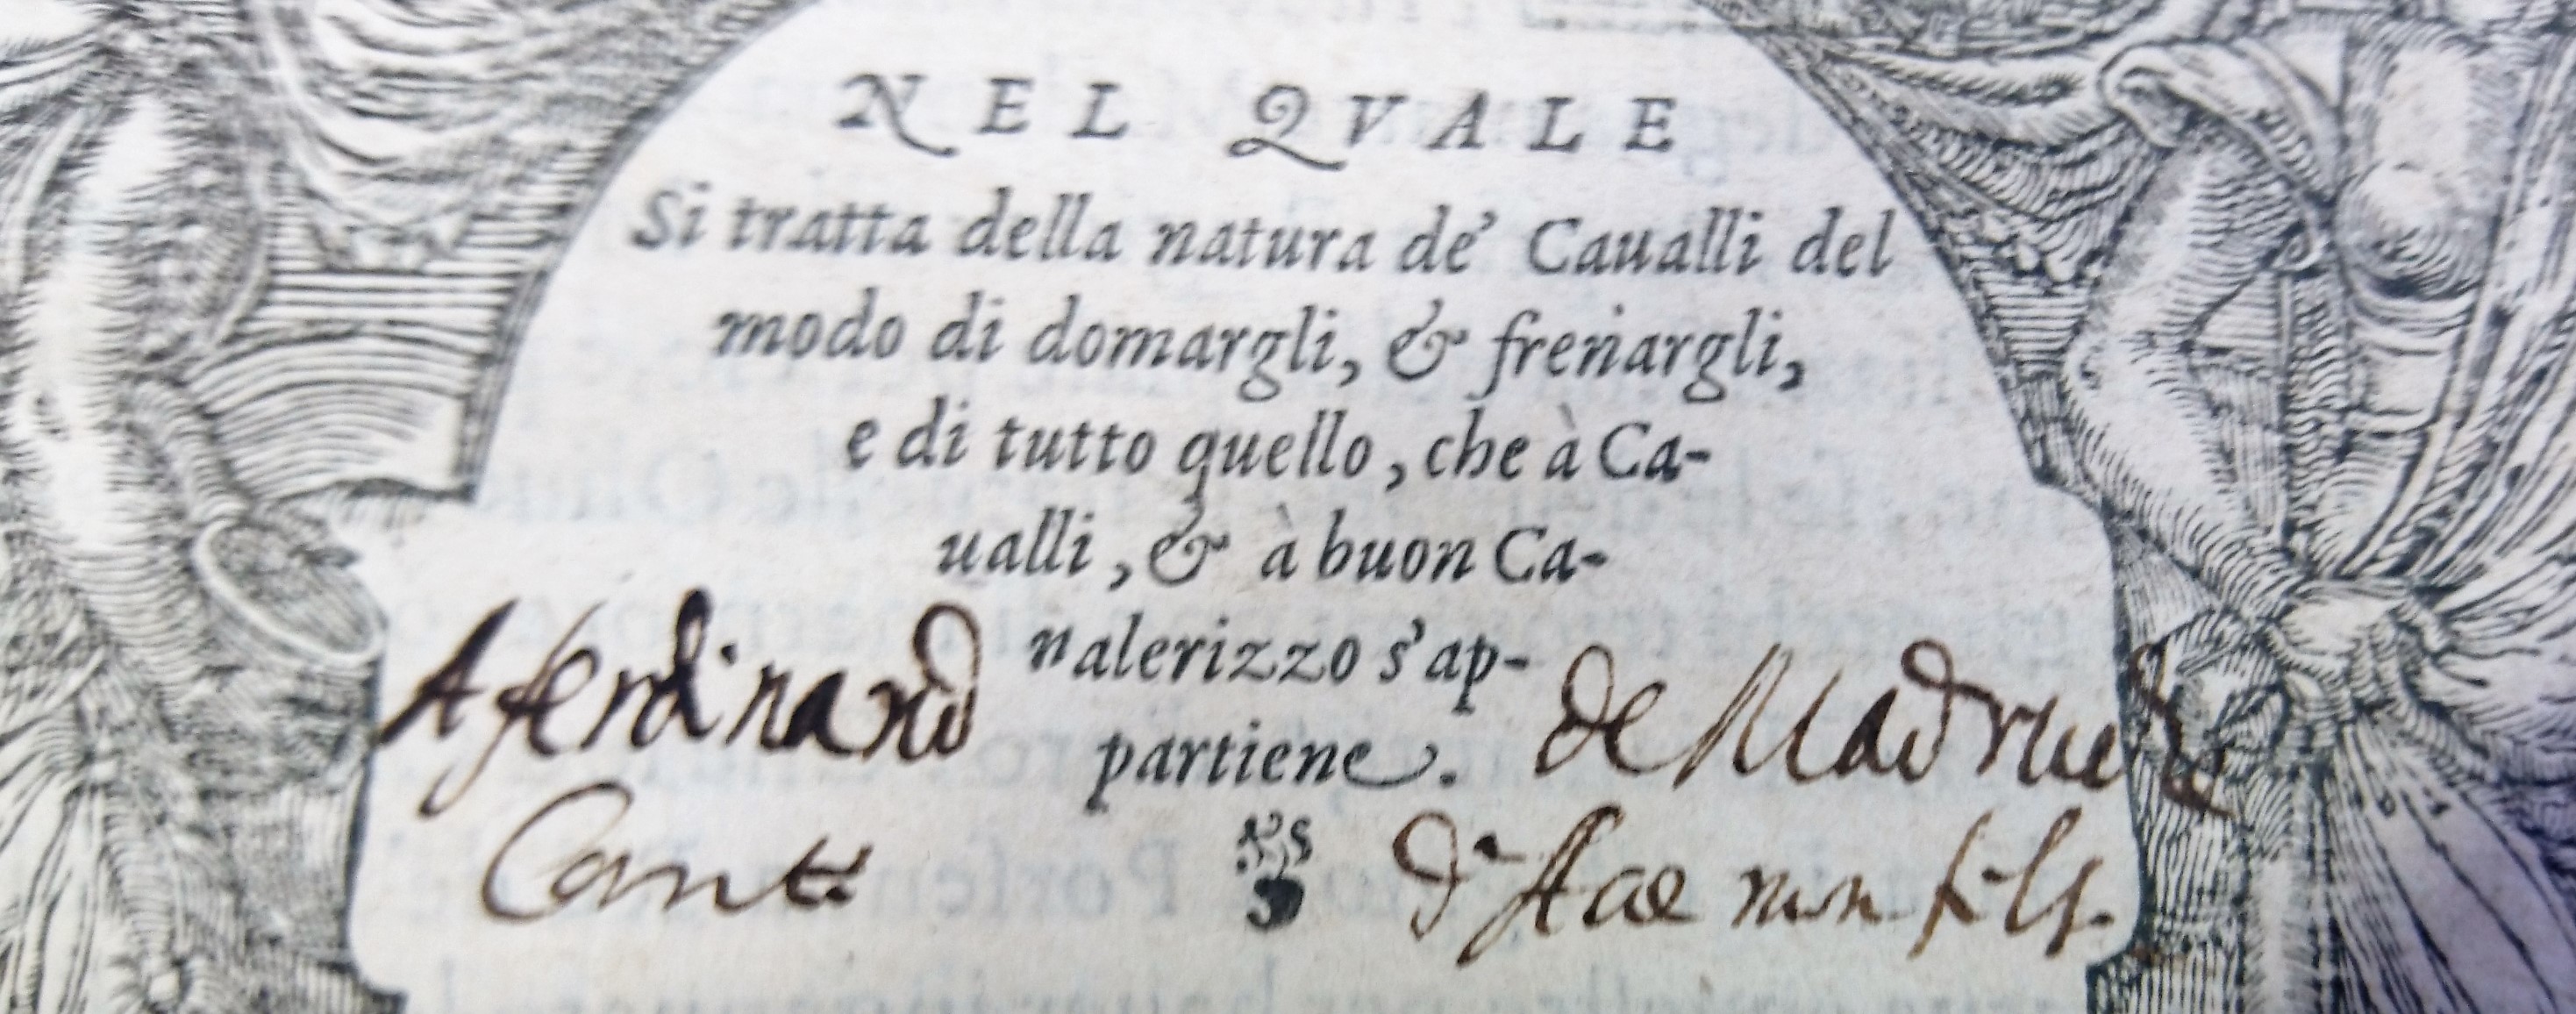 NEL QVALE
Si tratta della natura de' Caualli del
modo di domargli, & frenargli,
e di tutto quello, che à Ca-
ualli, & à buon Ca-
ualerizzo s'ap-
partiene.
A ferdinand de Madru